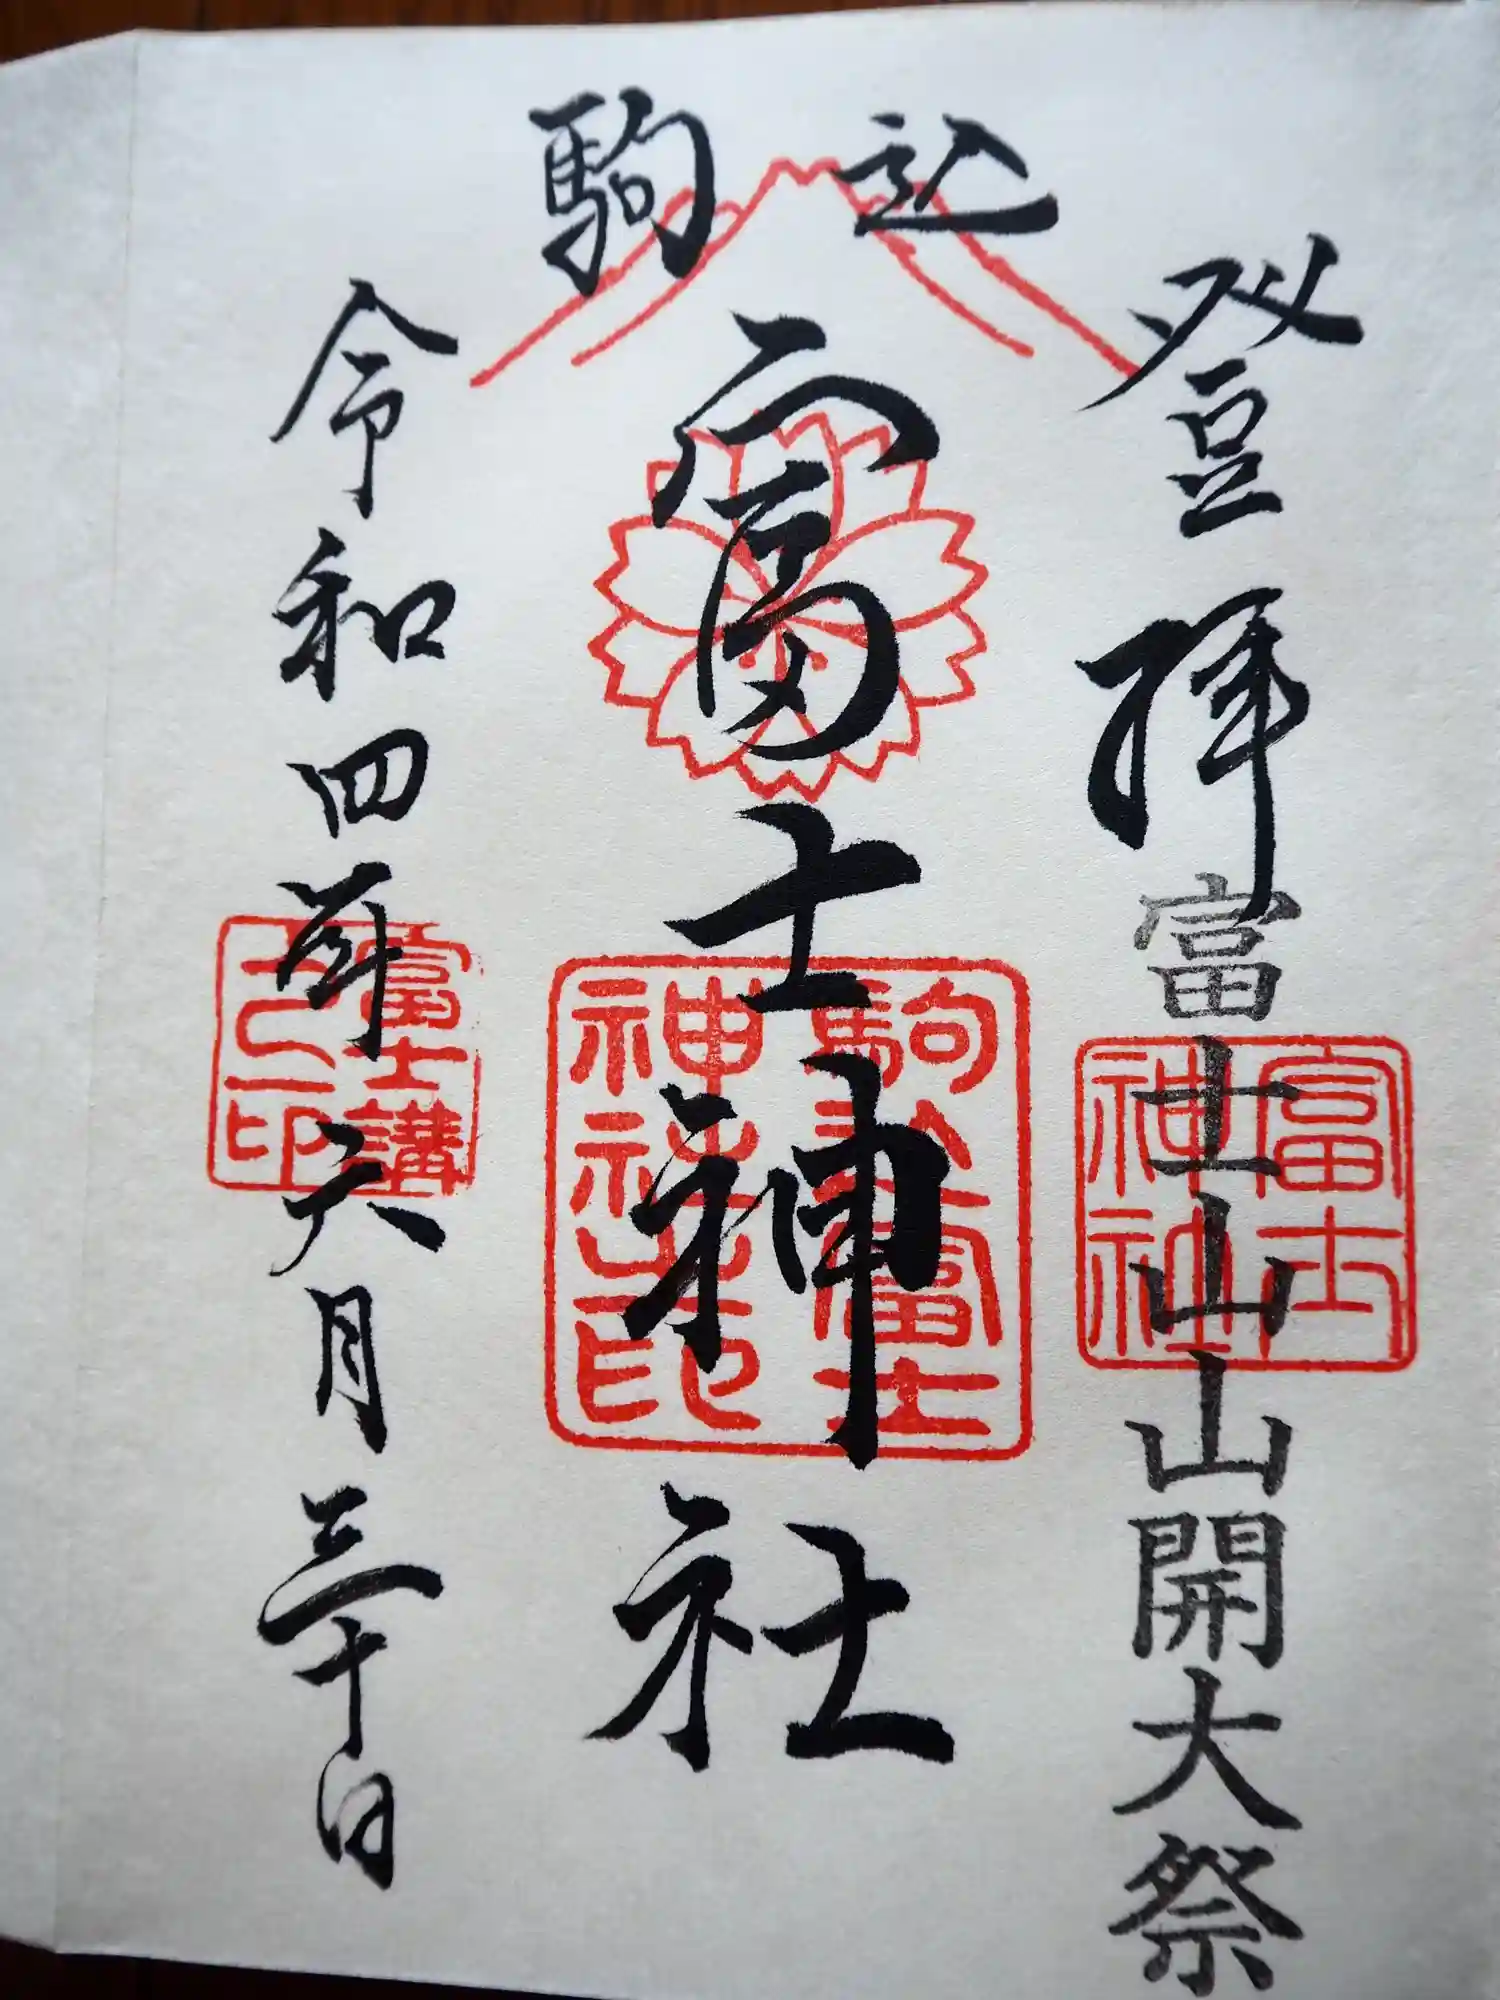 登拝
富士山山開大祭
富士神社
駒込
富士神社
駒込富士
神社之印
令和四年六月三十日
富士講